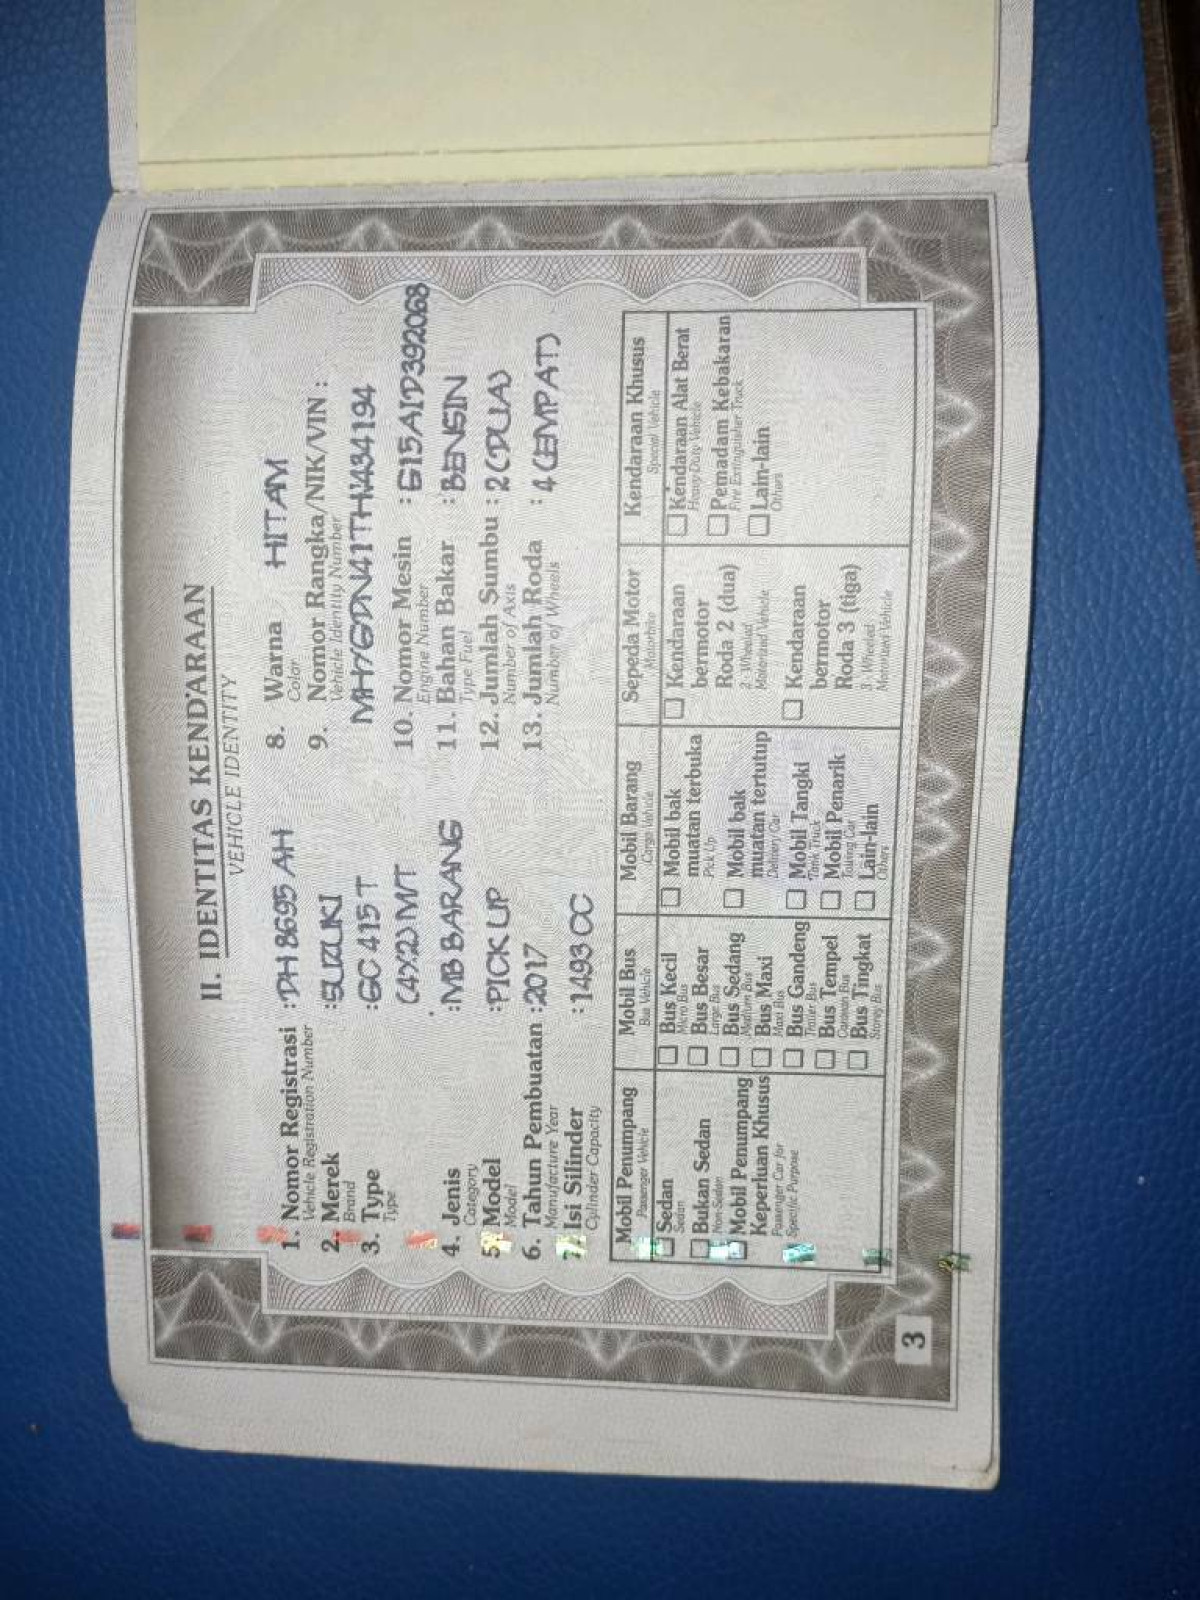 II. IDENTITAS KENDARAAN
VEHICLE IDENTITY
1. Nomor Registrasi : DH 8695 AH
Vehicle Registration Number
2. Merek : SUZUKI
Brand
3. Type : GC 415 T
Type
(4X2) M/T
4. Jenis : MB BARANG
Category
5. Model : PICK UP
Model
6. Tahun Pembuatan : 2017
Manufacture Year
7. Isi Silinder : 1493 CC
Cylinder Capacity
8. Warna HITAM
Color
9. Nomor Rangka/NIK/VIN :
Vehicle Identity Number
10. Nomor Mesin : G15AID392068
Engine Number
11. Bahan Bakar : BENSIN
Type Fuel
12. Jumlah Sumbu : 2 (DUA)
Number of Axis
13. Jumlah Roda : 4 (EMPAT)
Number of Wheels
Mobil Penumpang
Passenger Vehicle
Sedan
Sedan
Bukan Sedan
Non-Sedan
Mobil Penumpang
Keperluan Khusus
Passenger Car for
Specific Purpose
Mobil Bus
Bus Vehicle
Bus Kecil
Micro Bus
Bus Besar
Large Bus
Bus Sedang
Medium Bus
Bus Maxi
Maxi Bus
Bus Gandeng
Bus Tempel
Bus Tingkat
Storey Bus
Mobil Barang
Cargo Vehicle
Mobil bak
muatan terbuka
Pick Up
Mobil bak
muatan tertutup
Delivery Car
Mobil Tangki
Tank Truck
Mobil Penarik
Towing Car
Lain-lain
Others
Sepeda Motor
Motorbike
Kendaraan
bermotor
Roda 2 (dua)
2- Wheeled
Motorized Vehicle
Kendaraan
bermotor
Roda 3 (tiga)
3- Wheeled
Motorized Vehicle
Kendaraan Khusus
Special Vehicle
Kendaraan Alat Berat
Heavy Duty Vehicle
Pemadam Kebakaran
Fire Extinguisher Truck
Lain-lain
Others
3